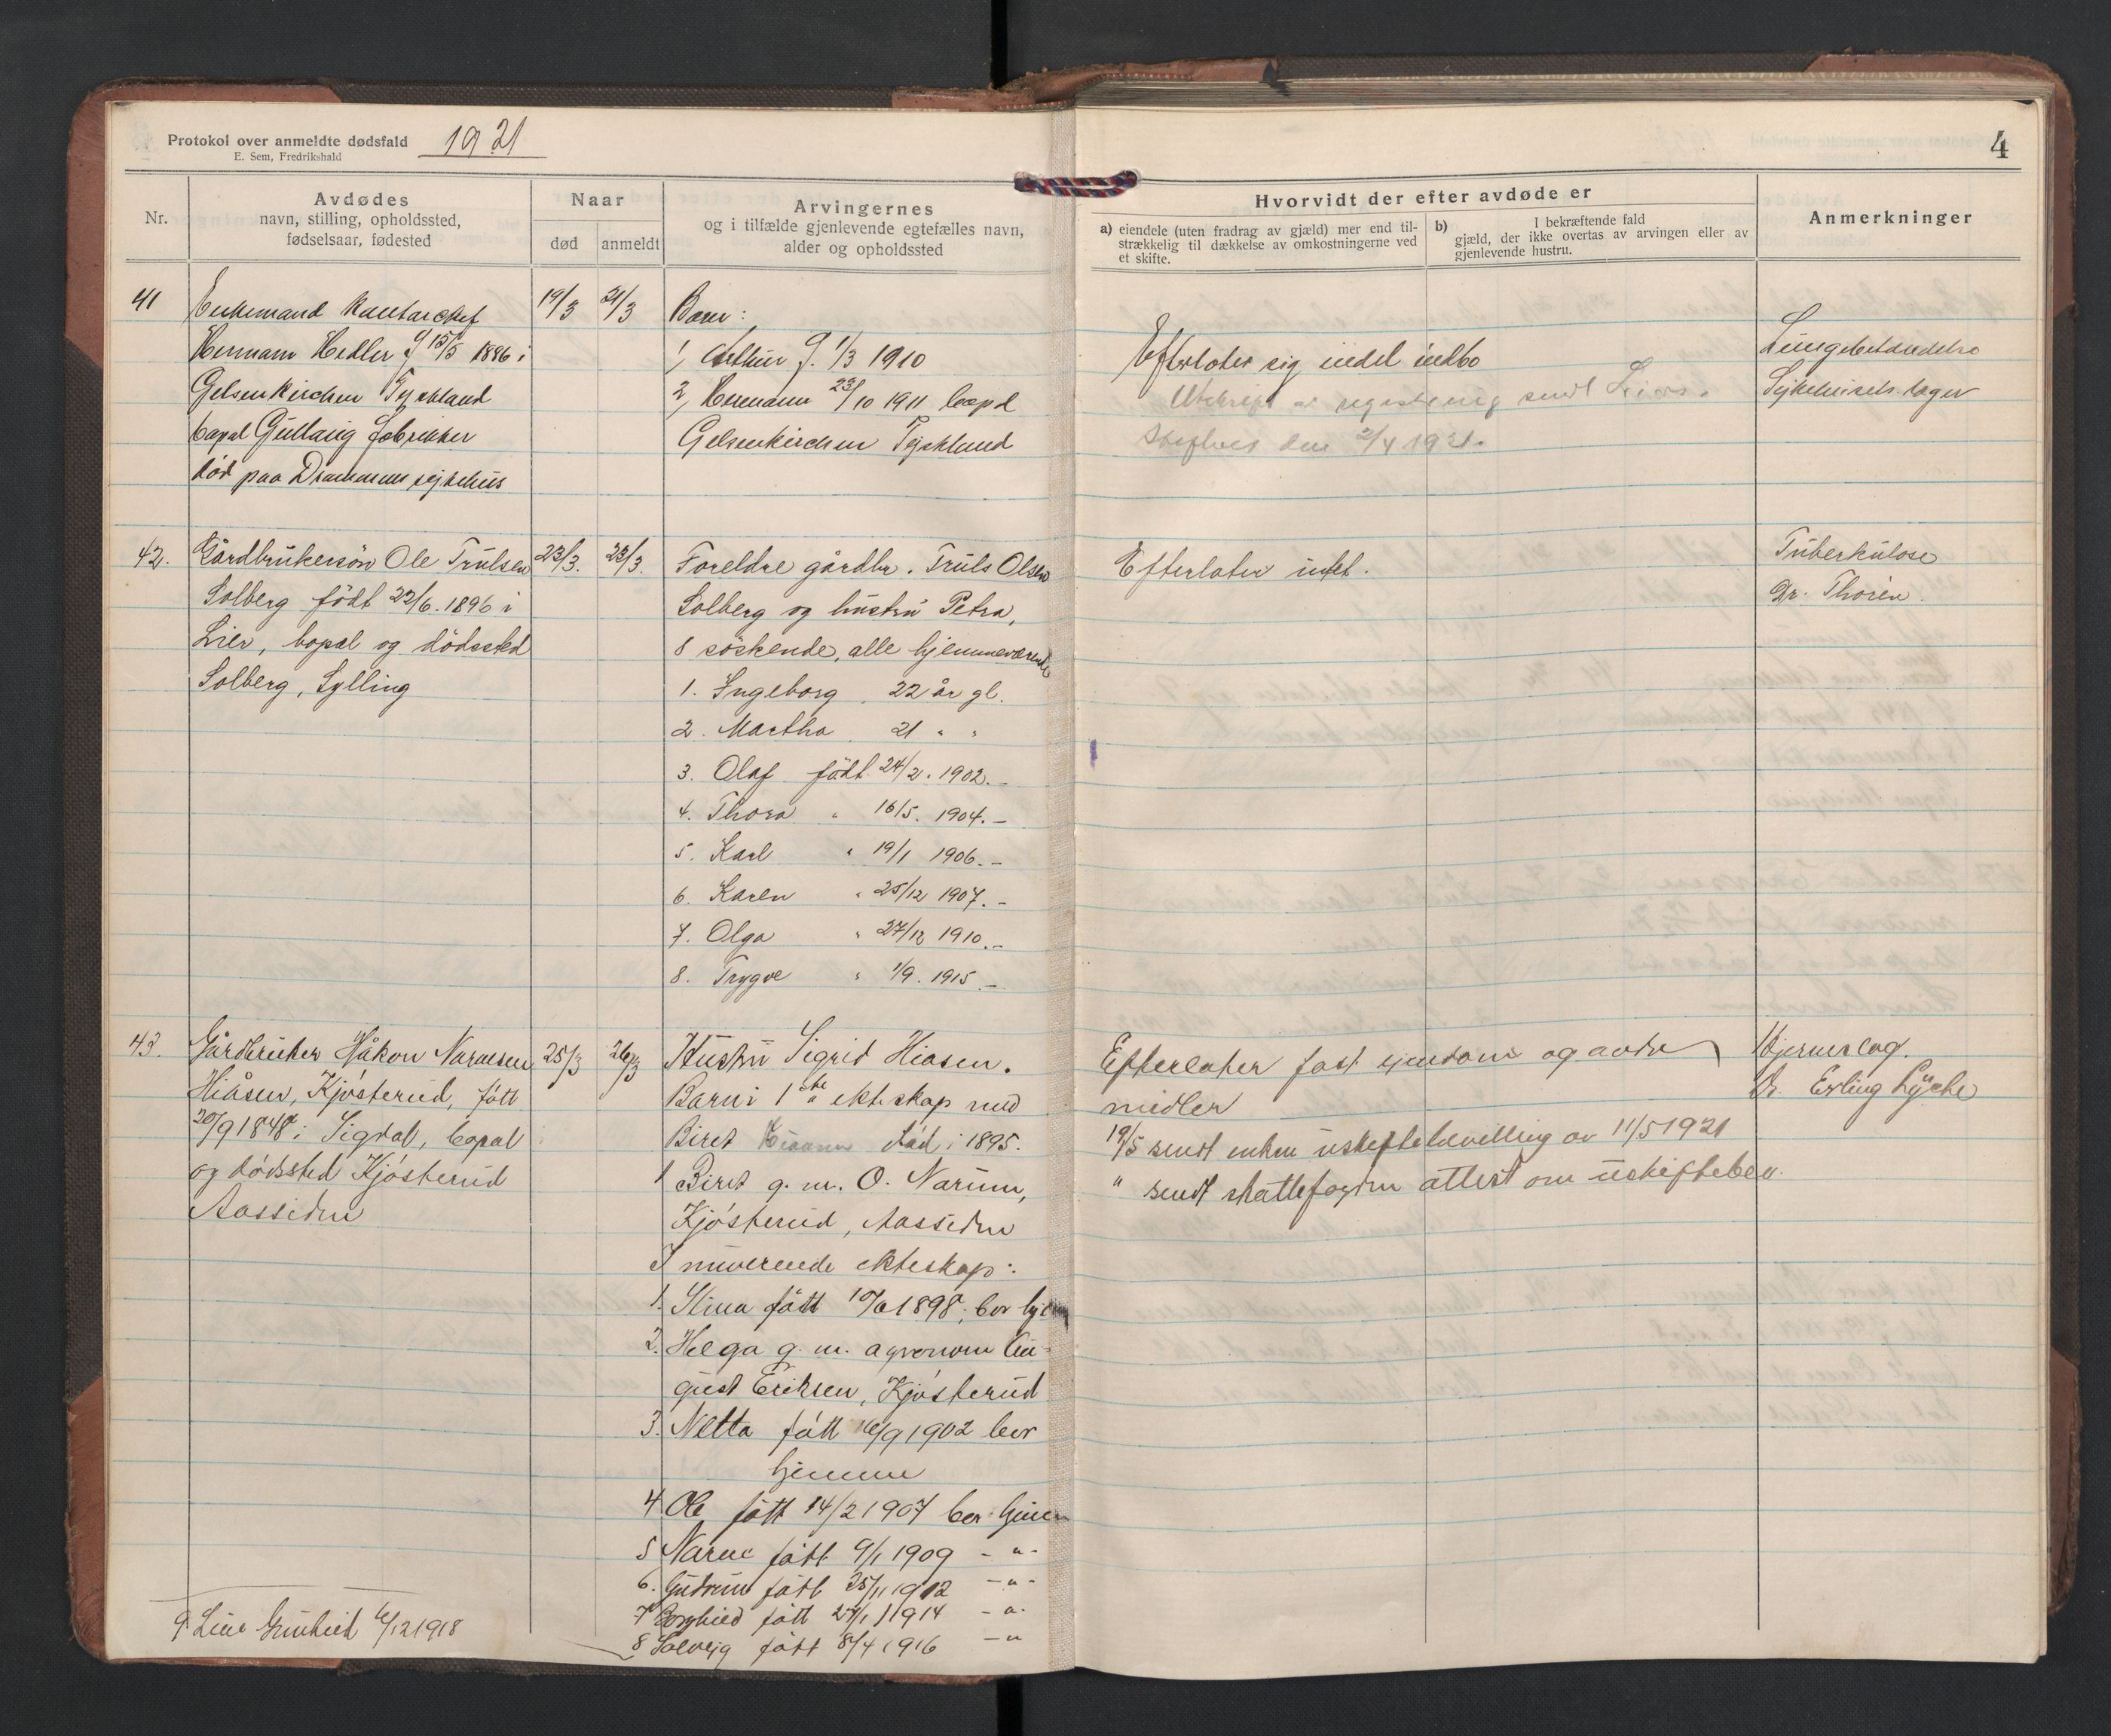 Protokol over anmeldte dødsfald 1921
E. Sem, Fredrikshald
Nr.
Avdødes
navn, stilling, opholdssted,
fødselsaar, fødested
Naar
død
anmeldt
Arvingernes
og i tilfælde gjenlevende egtefælles navn,
alder og opholdssted
4
Hvorvidt der efter avdøde er
a) eiendele (uten fradrag av gjæld) mer end til-
strækkelig til dækkelse av omkostningerne ved
et skifte.
b) I bekræftende fald
gjæld, der ikke overtas av arvingen eller av
gjenlevende hustru.
Anmerkninger
41
Enkemand
Hermann Hedler f 15/5 1886 i
Gelsenkirchen Tyskland
bopal Gullaug fabrikker
död paa Drammens sykehus
19/3
21/3
Barn:
1, Arthur f. 1/3 1910
2, Hermann 23/10 1911 bopal
Gelsenkirchen Tyskland
Efterlater sig indel indbo
Utskrift av registrering sendt Liers
den 2/4 1921.
Lungebetændelse
Sykehusets læger
42.
Gårdbrukersön Ole Trulsen
Solberg födt 22/6. 1896 i
Lier, bopal og dödssted
Solberg, Sylling
23/3.
23/3.
Foreldre gårdbr. Truls Olsen
Solberg og hustru Petra,
8 söskende, alle hjemmeværende
1. Ingeborg 22 år gl.
2. Martha 21 " "
3. Olaf födt 24/2. 1902. –
4. Thora " 16/5. 1904. –
5. Karl " 19/1 1906. –
6. Karen " 25/12 1907. –
7. Olga " 27/12 1910. –
8. Trygve " 1/9. 1915. –
Efterlater intet.
Tuberkulose
Dr. Thorén.
43.
Gårdbruker Håkon Narvesen
Hiåsen, Kjösterud, fött
20/9 1848 i Sigdal, bopal
og dödssted Kjösterud
Aassiden
25/3
26/3
Hustru Sigrid Hiåsen.
Barn i 1ste ekteskap med
Biret död i 1895.
1 Biret g. m. O. Narum,
Kjösterud, Aassiden
I nuverende ekteskap:
1. Stina fött 1898, bor hjem
2. Helga g. m. agronom Au-
gust Eriksen, Kjösterud
3. Netta fött 16/9 1902 bor
hjemme
4 Ole fött 14/2 1907 bor hjem
5 Narve fött 9/1 1909 – " –
6. Gudrun fött 25/11 1912 – " –
7 Borghild fött 27/1 1914 – " –
8 Solveig fött 8/4 1916 – "
9. Line Gunhild 6/12 1918
Efterlater fast eiendom og andre
midler
19/5 sendt enken uskiftebevilling av 11/5 1921
" sendt skattefogden attest om uskiftebev.
Hjerneslag.
Dr. Erling Lyche